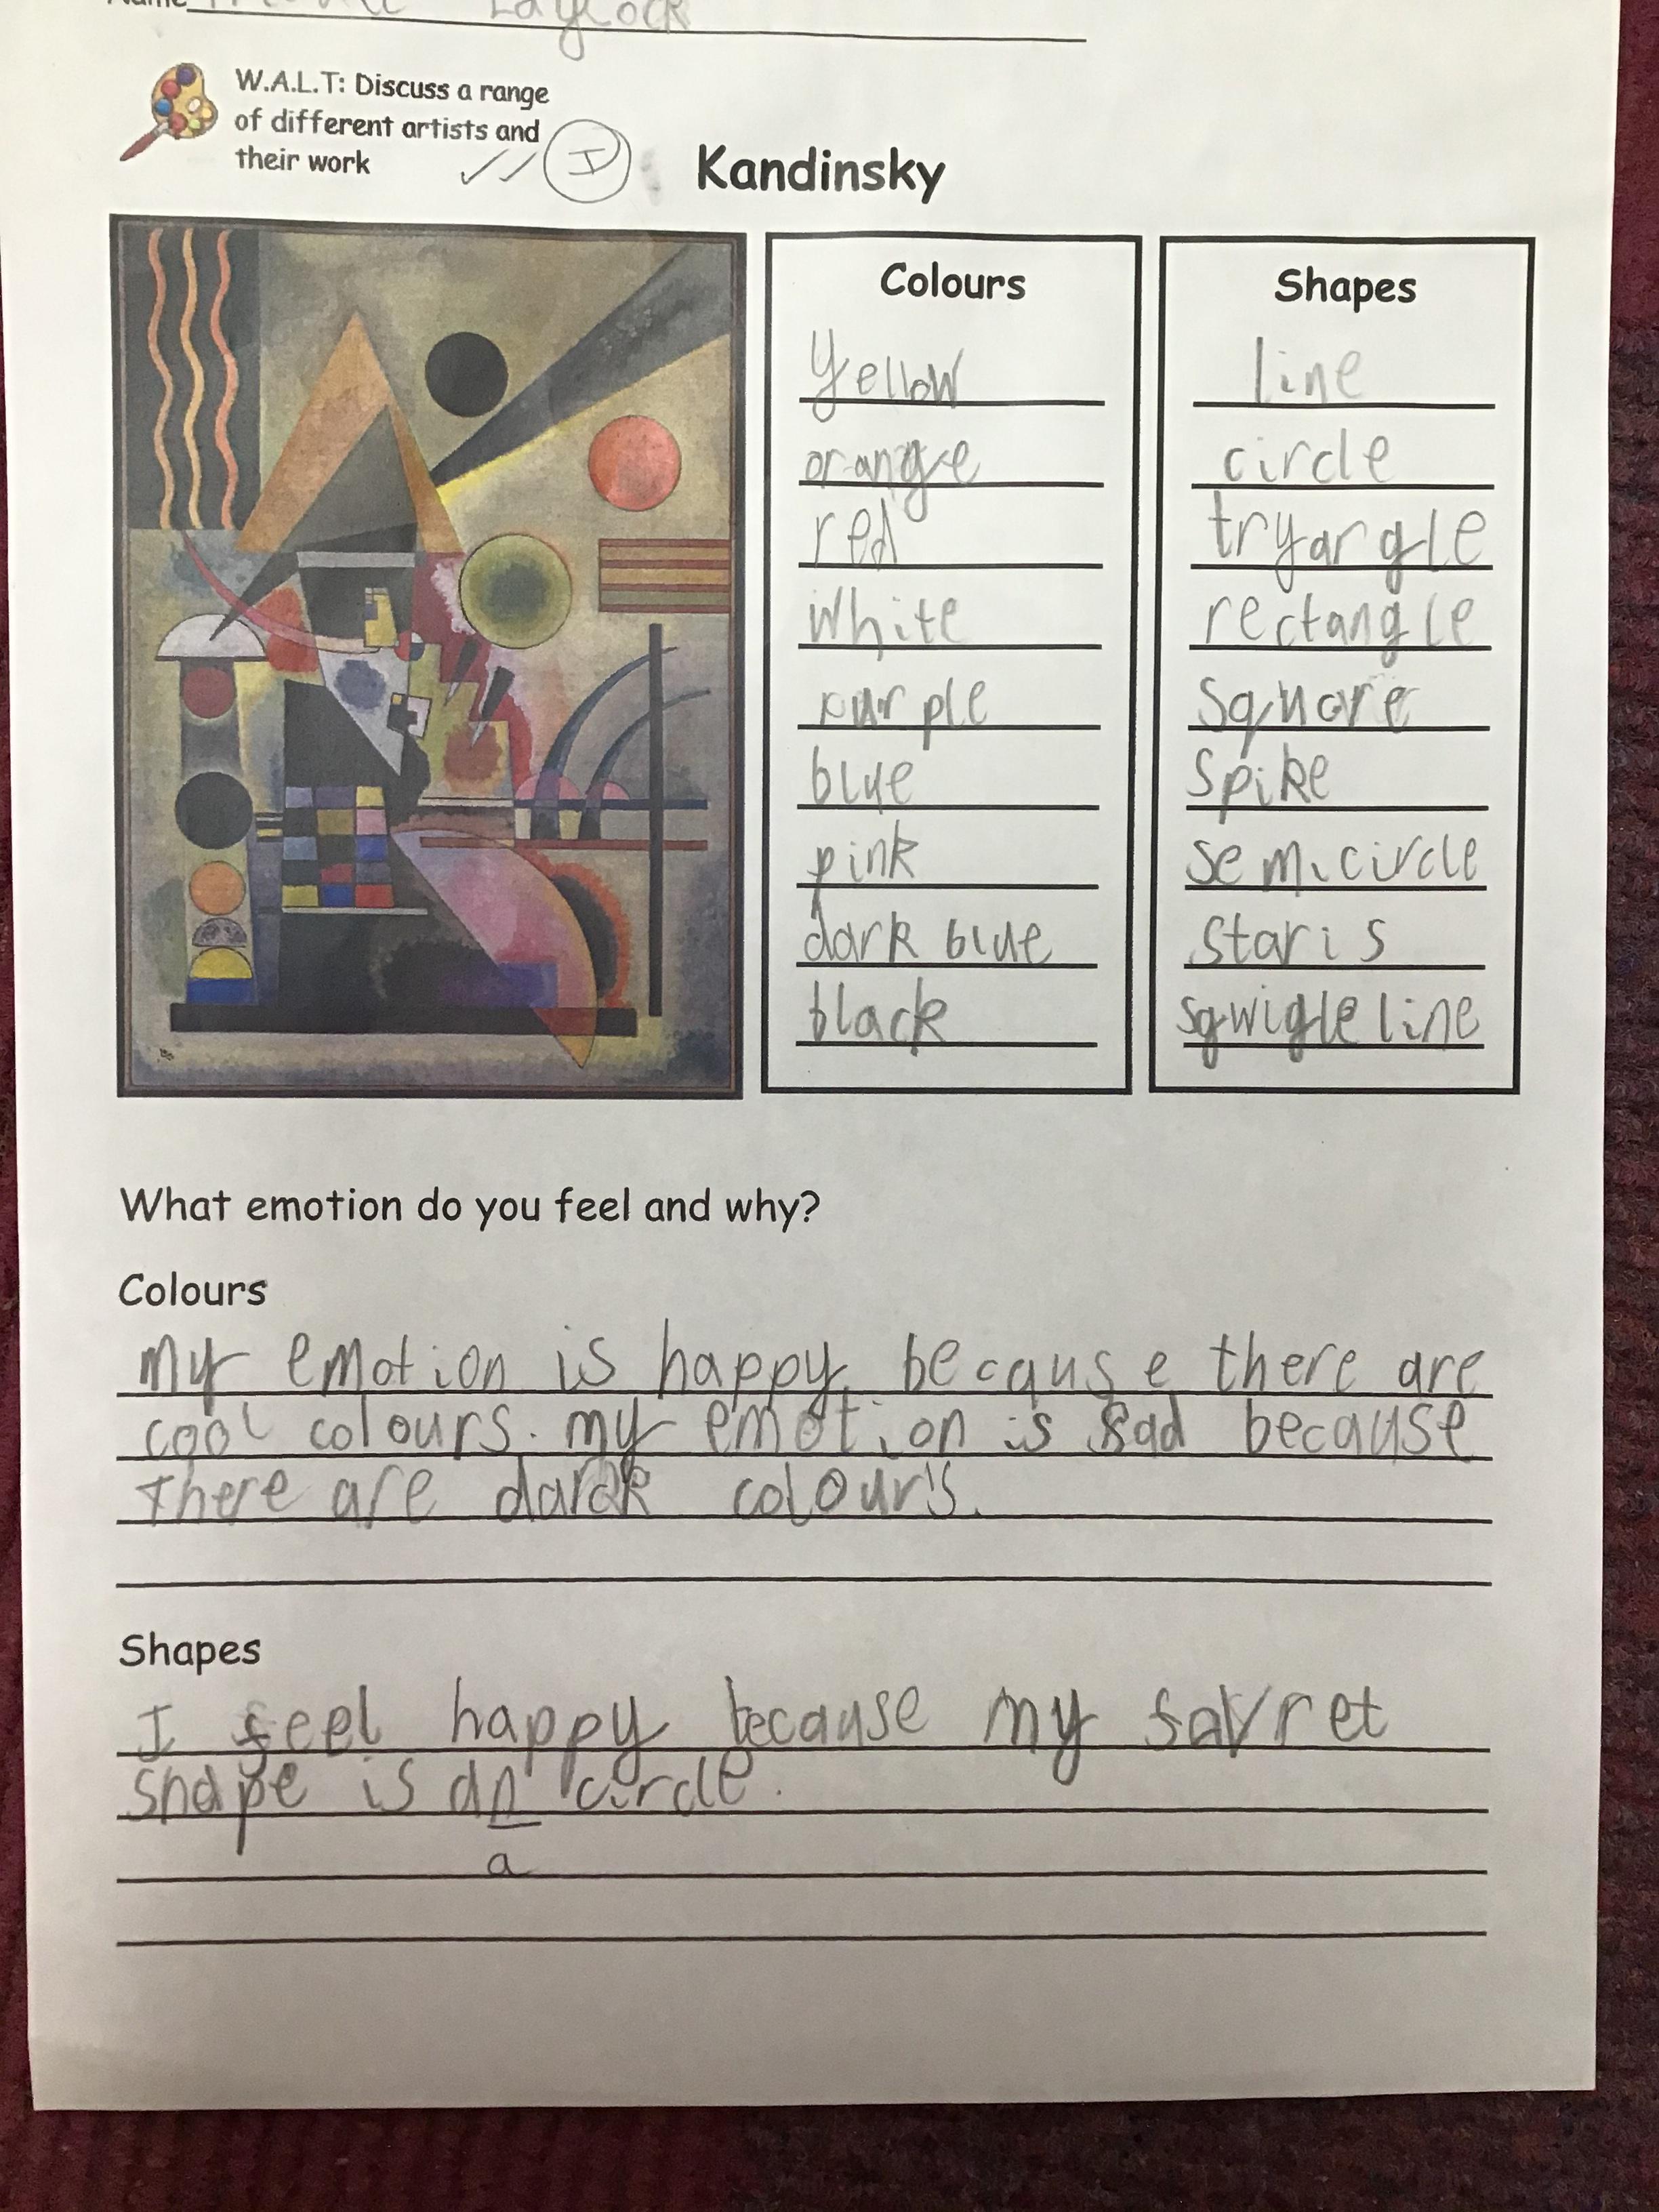 Laylock
W.A.L.T: Discuss a range
of different artists and
their work
I
Kandinsky
Colours
yellow
orange
red
white
purple
blue
pink
dark blue
black
Shapes
line
circle
tryargle
rectangle
square
spike
semicircle
staris
sqwigle line
What emotion do you feel and why?
Colours
my emotion is happy because there are
cool colours. my emotion is sad because
there are dark colours.
Shapes
I feel happy because my favret
shape is an circle.
a